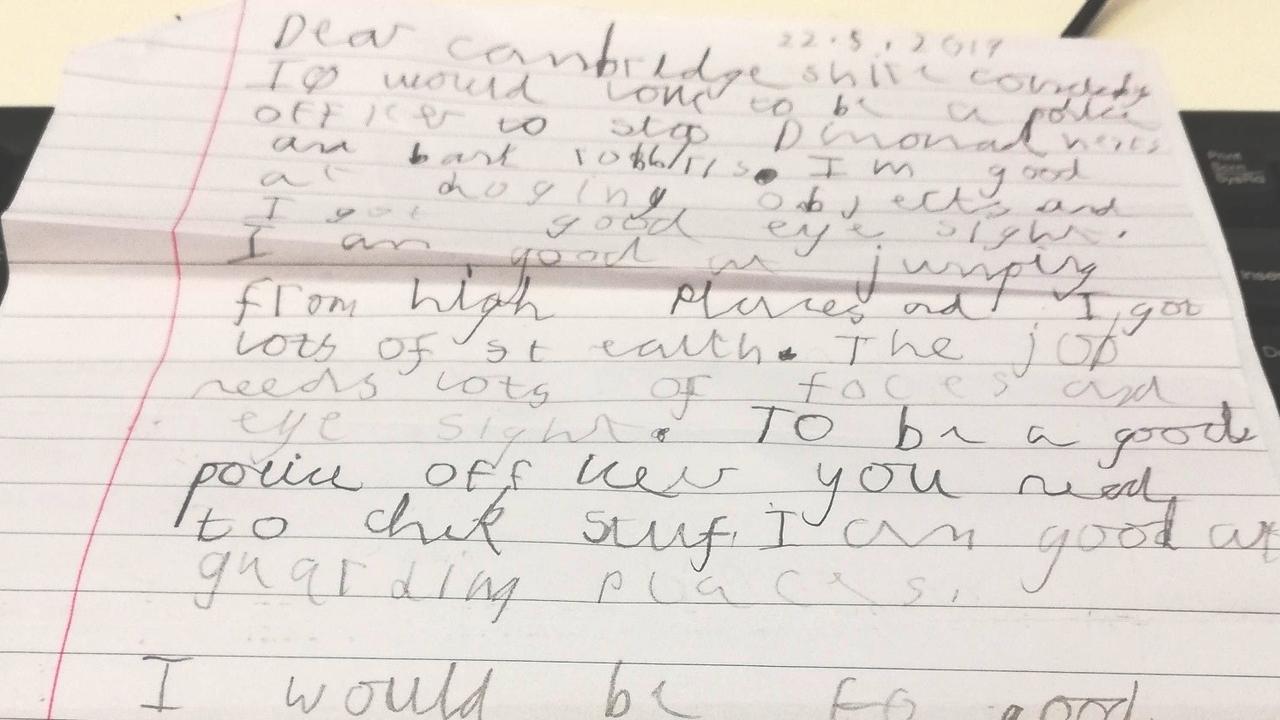 22.5.2019
Dear Cambridgeshire
I would love to be a police
officer to stop Dimond heists
and bank robbris. I m good
at doging objects and
I got good eye sight.
I am good in jumping
from high places and I got
lots of st ealth. The job
needs lots of foces and
eye sight. To be a good
police officer you need
to chek stuf. I am good at
guarding places.
I would be good